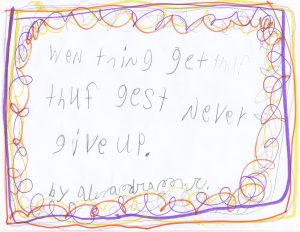 wen thing get thuf
thuf gest never
give up.
by